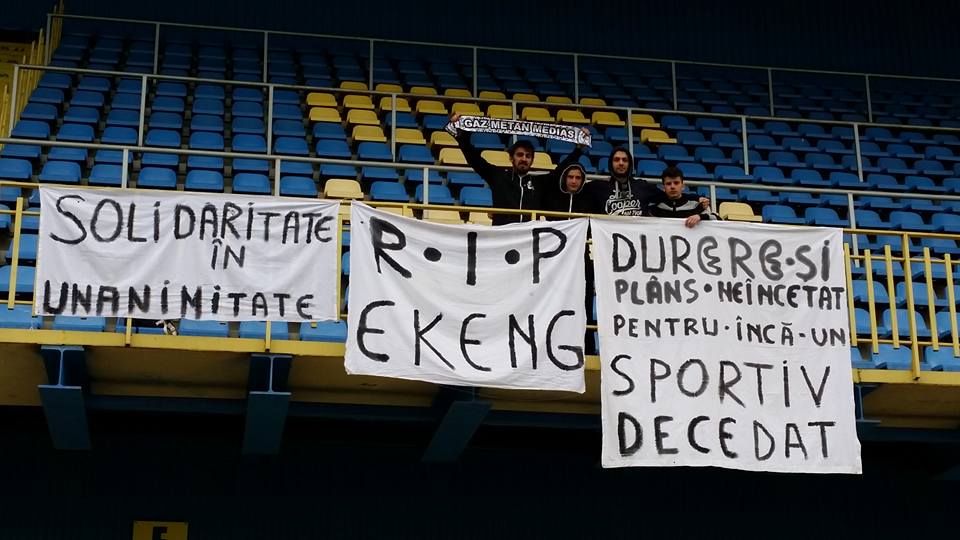 GAZ METAN MEDIAS
SOLIDARITATE
ÎN
UNANIMITATE
R·I·P
EKENG
DURERE·SI
PLÂNS·NEÎNCETAT
PENTRU·ÎNCĂ·UN
SPORTIV
DECEDAT
Cooper
E